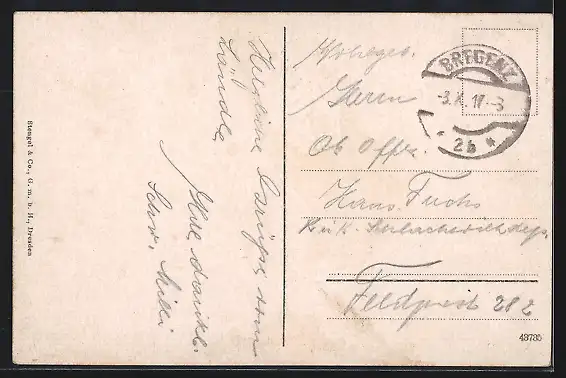 Herzliche Grüße vom
Ländle.
Schw. Milli
Stengel & Co., G. m. b. H., Dresden
BREGENZ
-3.X.17-8
* 2b *
Wohlgeb.
Herrn
Ob. Offz.
Hans Fuchs
K. u. K.
Feldpost 282
49785